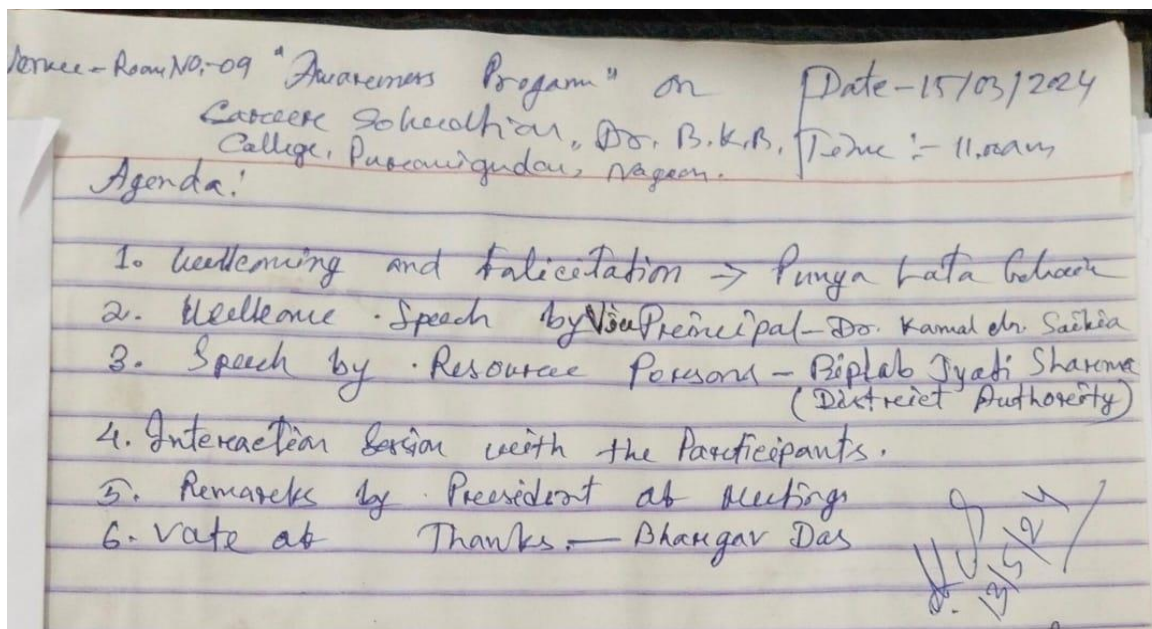 Venue - Room NO:-09 "Awareness Progam" on
Date - 15/03/2024
Careere, Dr. B.K.B.
Time :- 11.00am
College, Puranigudam, Nagaon.
Agenda:
1. Wellcoming and Falicitation → Punya Lata Gohain
2. Wellcome Speech by Vice Preincipal - Dr. Kamal ch. Saikia
3. Speech by Resource Persons - Biplab Jyoti Sharma
(District Authority)
4. Interaction Session with the Participants.
5. Remarks by President of Meetings
6. Vote of Thanks. — Bhargav Das
13/5/24